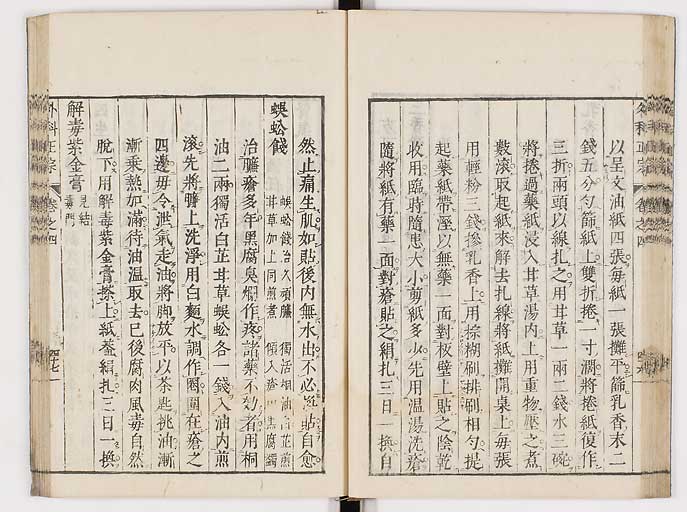 以呈文油紙四張毎紙一張攤平篩乳香末二
錢五分勻篩紙上雙折捲一寸濶將捲紙復作
三折兩頭以線扎之用甘草一兩二錢水三碗
將捲過藥紙浸入甘草湯内上用重物壓之煮
數滚取起紙來解去扎線將紙攤開桌上毎張
用輕粉三錢摻乳香上用棕糊刷排刷相勻提
起藥紙帶溼以無藥一面對板壁上貼之陰乾
收用臨時隨患大小剪紙多少先用温湯洗瘡
隨將紙有藥一面對瘡貼之絹扎三日一換自
然止痛生肌如貼後内無水出不必換貼自愈
蜈蚣餞
蜈蚣餞治久頑臁 獨活桐油白芷煎
甘草加上同煎煮 傾入瘡
治臁瘡多年黒腐臭爛作疼諸藥不効者用桐
油二兩獨活白芷甘草蜈蚣各一錢入油内煎
滚先將臁上洗淨用白麺水調作圈圍在瘡之
四邊毋令泄氣走油將脚放平以茶匙挑油漸
漸乘熱加滿待油温取去已後腐肉風毒自然
脫下用解毒紫金膏搽上紙葢絹扎三日一換
解毒紫金膏
見結
毒門
外科正宗
卷之四
外科正宗
卷之四